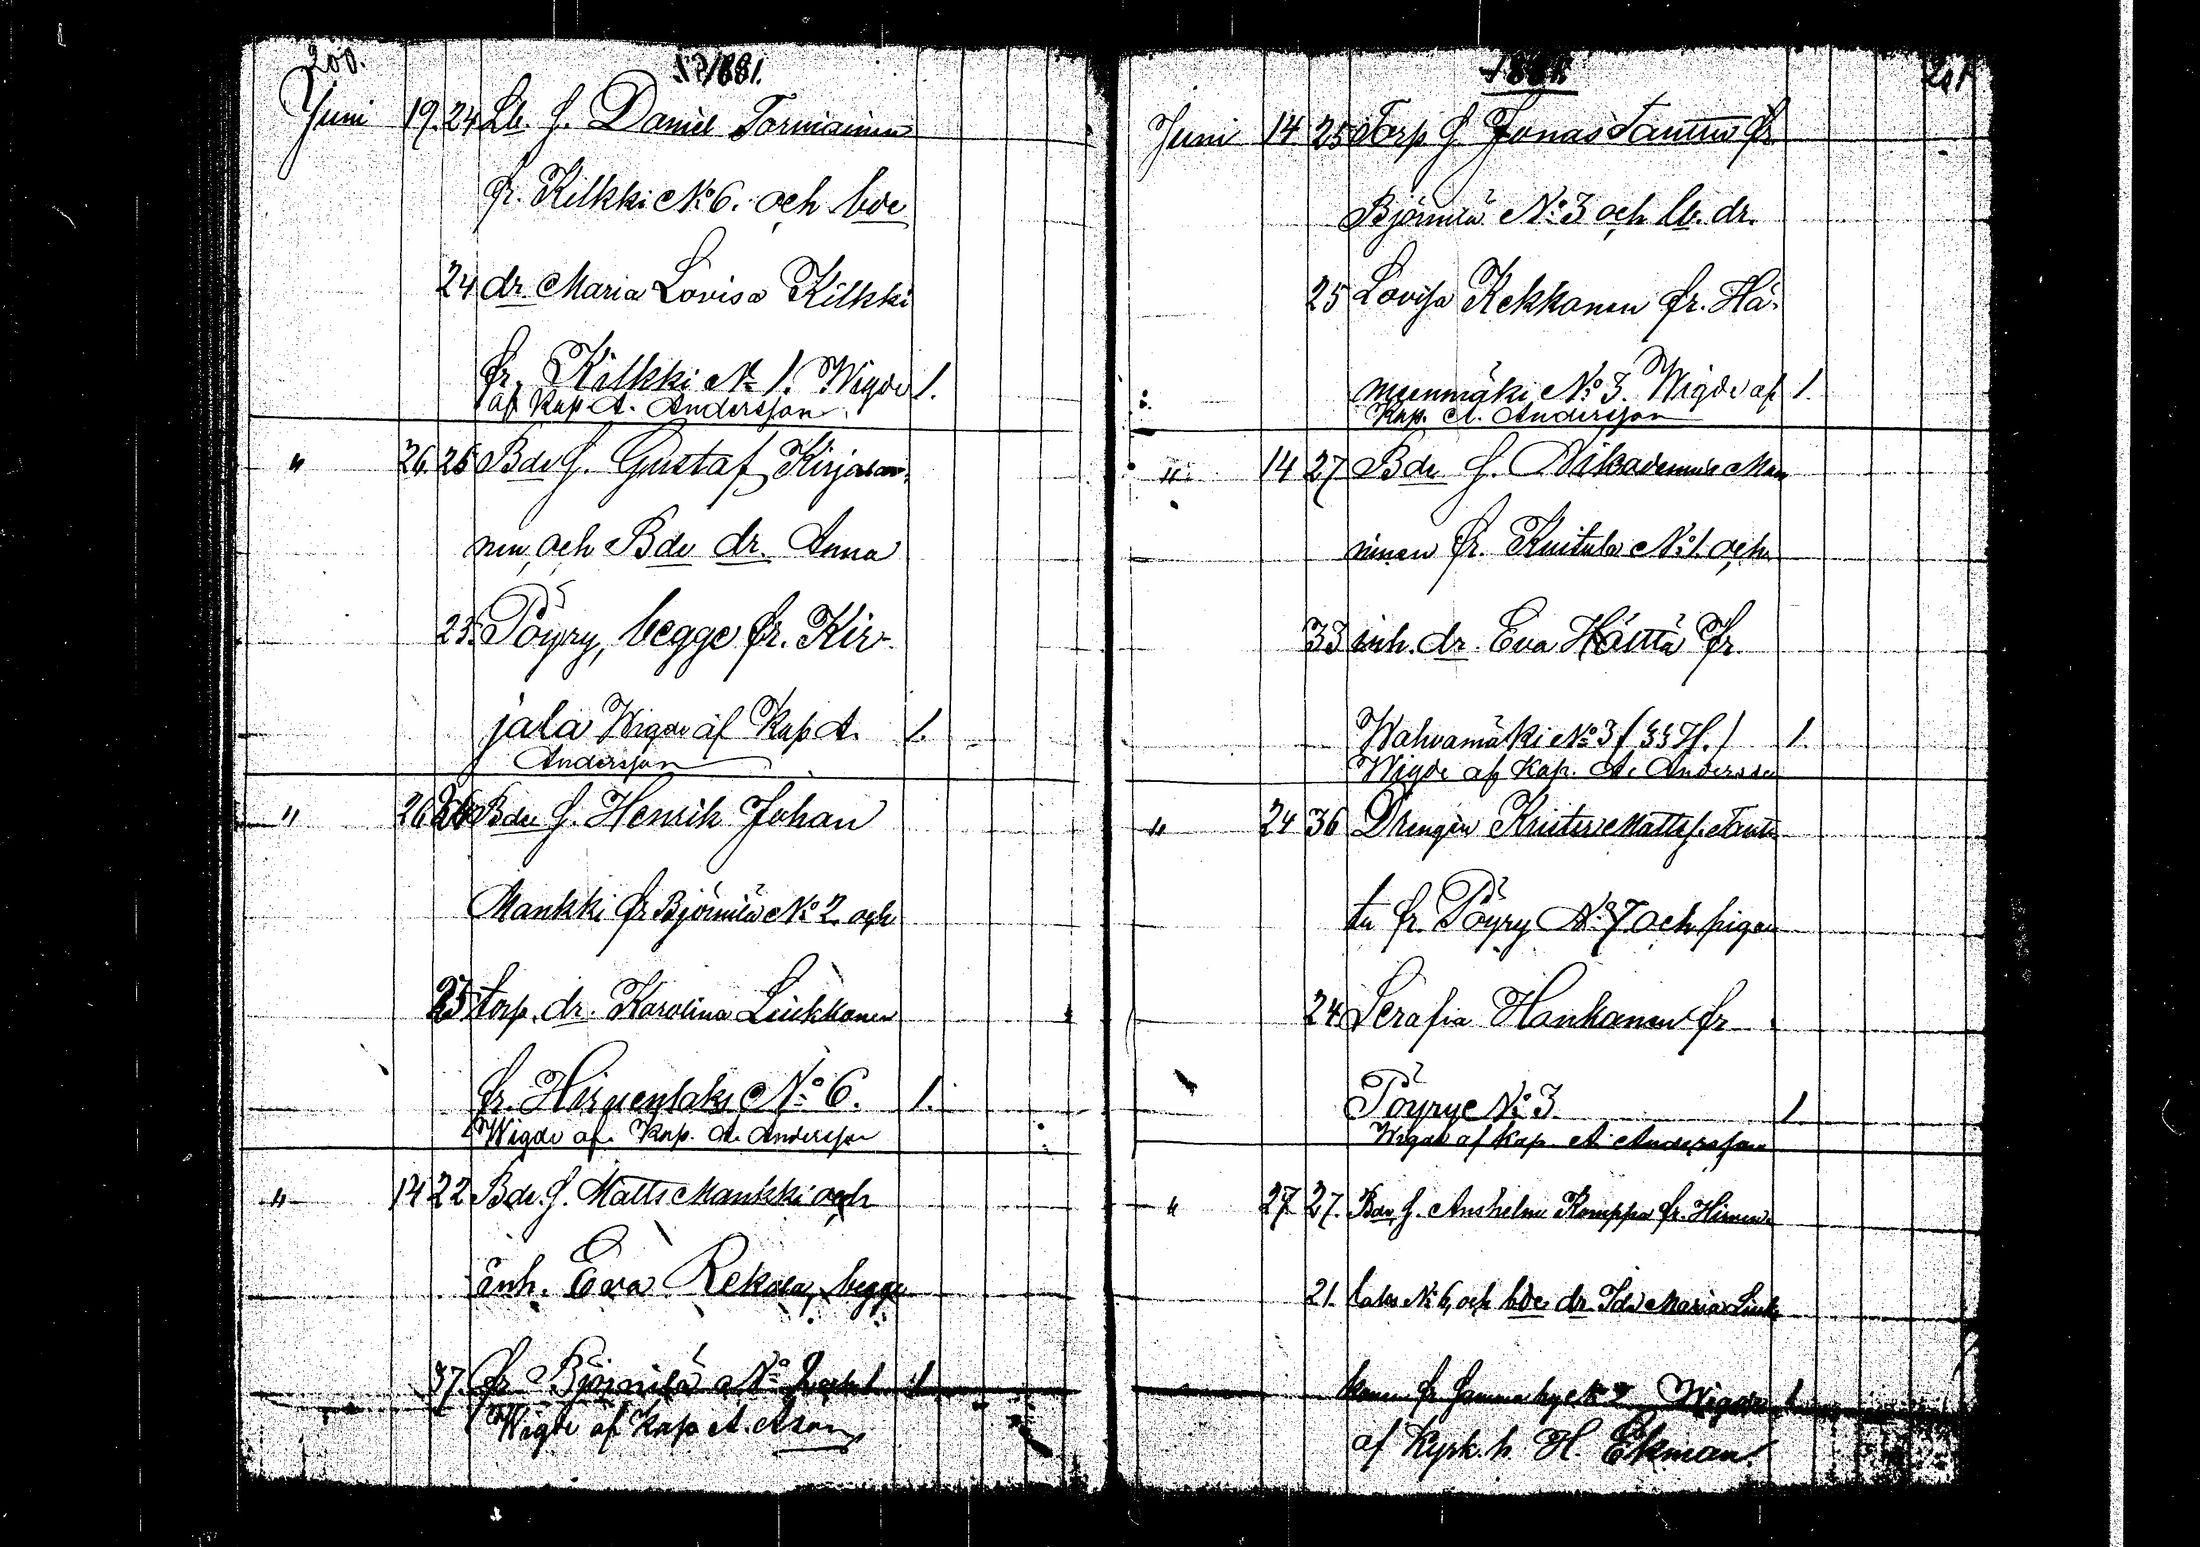 200.
1881.
Juni 19. 24 Lb. s. Daniel Tormiainen
fr. Kilkki No 6. och bde
24 dr. Maria Lovisa Kilkki
fr. Kilkki No 1. Wigde 1.
af Kap. A. Andersson
" 26. 25 Bde s. Gustaf Kirjalai-
nen, och Bde dr. Anna
25. Pöyry, begge fr. Kir-
jala Wigde af Kap A. 1.
Andersson
" 26 Bde s. Henrik Johan
Mankki fr Björnilä No 2 och
25 torp. dr. Karolina Liukkonen
fr. Hirvenlaks No 6. 1.
Wigde af Kap. A. Andersson
" 14 22 Bde. s. Matts Mankki och
inh. Eva Rekola, begge
37. fr Björnilä No 1.
Wigde af Kap A. Ason
1881. 201
Juni 14 25 Torp s Jonas Tanttu fr
Björnilä No 3 och lb. dr.
25 Lovisa Kekkonen fr. Hä-
meenmäki No 3. Wigde af 1.
Kap. A. Andersson
" 14 27 Bde s. Nikodemus Man
ninen fr. Kuitula No 1. och
33 inh. dr. Eva Hättä fr.
Wahvamäki No 3 (§§ H.) 1.
Wigde af Kap. A. Andersson
" 24 36 Drengen Krister Matts s. Tant
tu fr. Pöyry No 7 och pigan
24 Serafia Hankanen fr
Pöyry No 3 1
Wigde af Kap A Andersson
" 27 27. Bde s. Anshelm Komppa fr. Hirven-
21. laks No 6, och bde dr Ida Maria Liuk
konen fr samma by No Wigde 1
af Kyrk. h. H. Ekman.